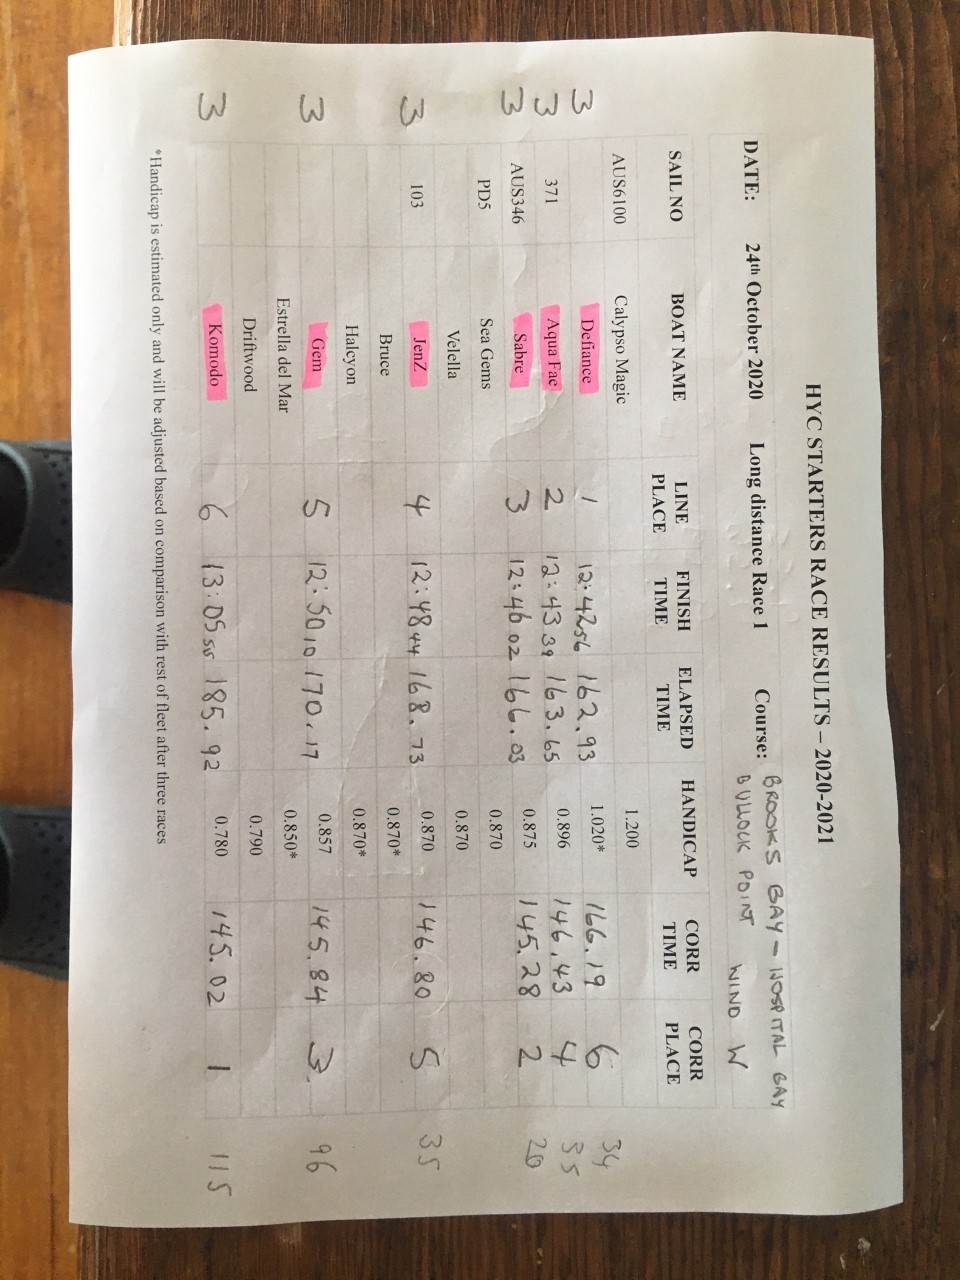 HYC STARTERS RACE RESULTS – 2020-2021
DATE: 24th October 2020 Long distance Race 1 Course: BROOKS BAY – HOSPITAL BAY
BULLOCK POINT WIND W
SAIL NO BOAT NAME LINE PLACE FINISH TIME ELAPSED TIME HANDICAP CORR TIME CORR PLACE
AUS6100 Calypso Magic 1.200
3 Defiance 1 12:42 56 162.93 1.020* 166.19 6 34
3 371 Aqua Fae 2 12:43 39 163.65 0.896 146.43 4 35
3 AUS346 Sabre 3 12:46 02 166.03 0.875 145.28 2 20
PD5 Sea Gems 0.870
Velella 0.870
3 103 JenZ 4 12:48 44 168.73 0.870 146.80 5 35
Bruce 0.870*
Halcyon 0.870*
3 Gem 5 12:50 10 170.17 0.857 145.84 3 96
Estrella del Mar 0.850*
Driftwood 0.790
3 Komodo 6 13:05 55 185.92 0.780 145.02 1 115
*Handicap is estimated only and will be adjusted based on comparison with rest of fleet after three races